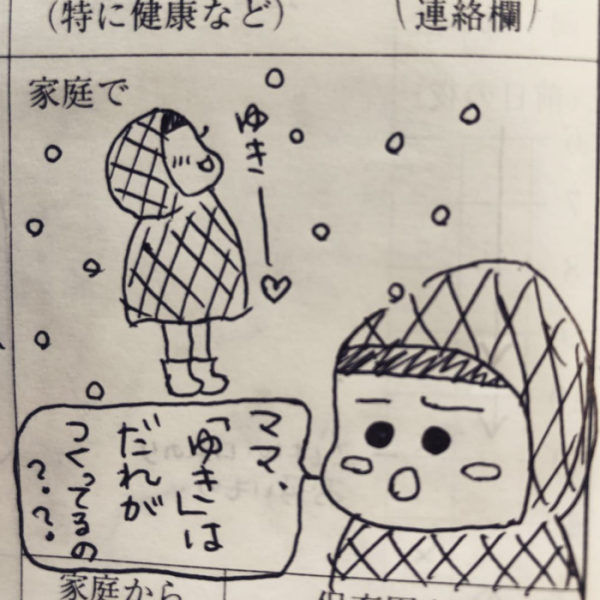 (特に健康など)
(連絡欄)
家庭で
ゆきー♡
ママ、
「ゆき」は
だれが
つくってるの
？？
家庭から